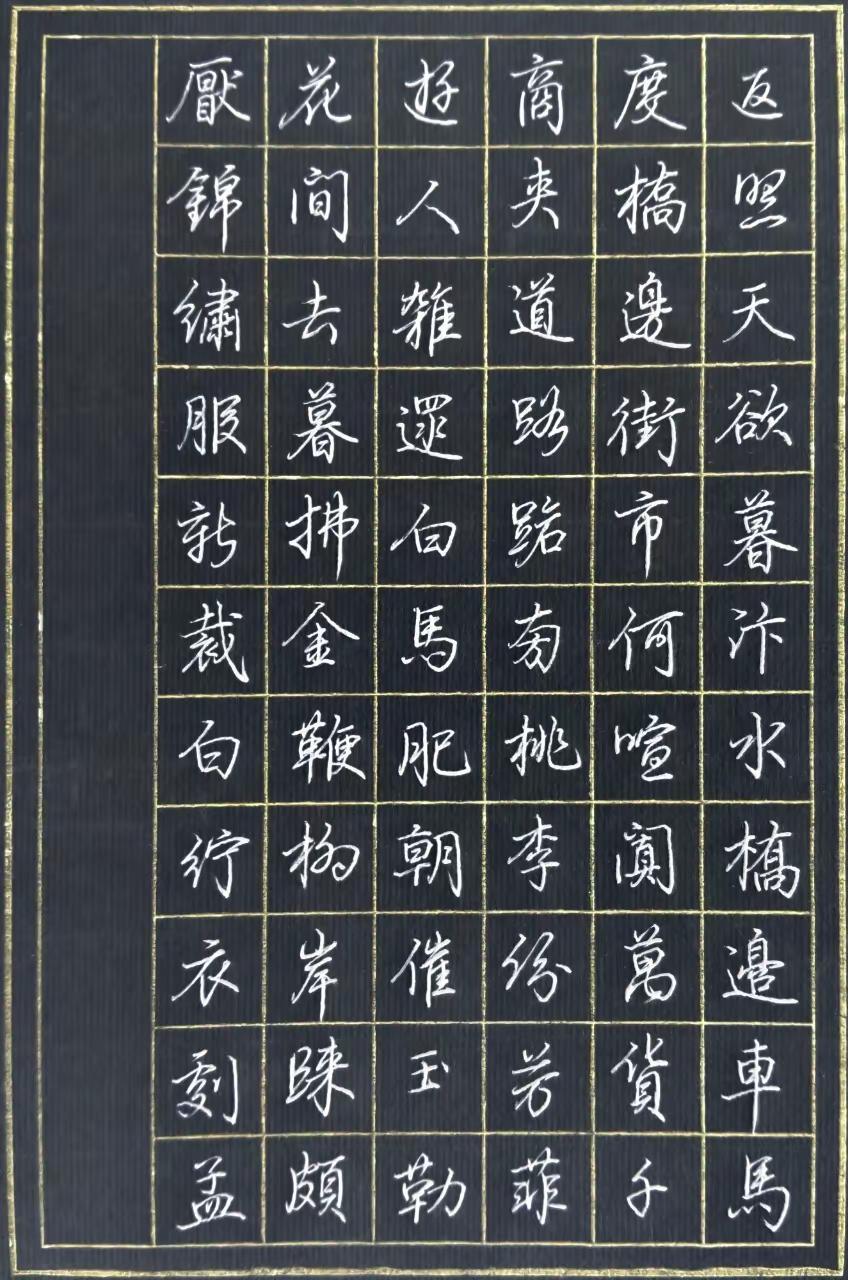 返照天欲暮汴水橋邊車馬
度橋邊街市何喧闐萬貨千
商夾道路踏南桃李紛芳菲
遊人雜遝白馬肥朝催玉勒
花間去暮拂金鞭柳岸歸頗
厭錦繡服新裁白紵衣劉孟